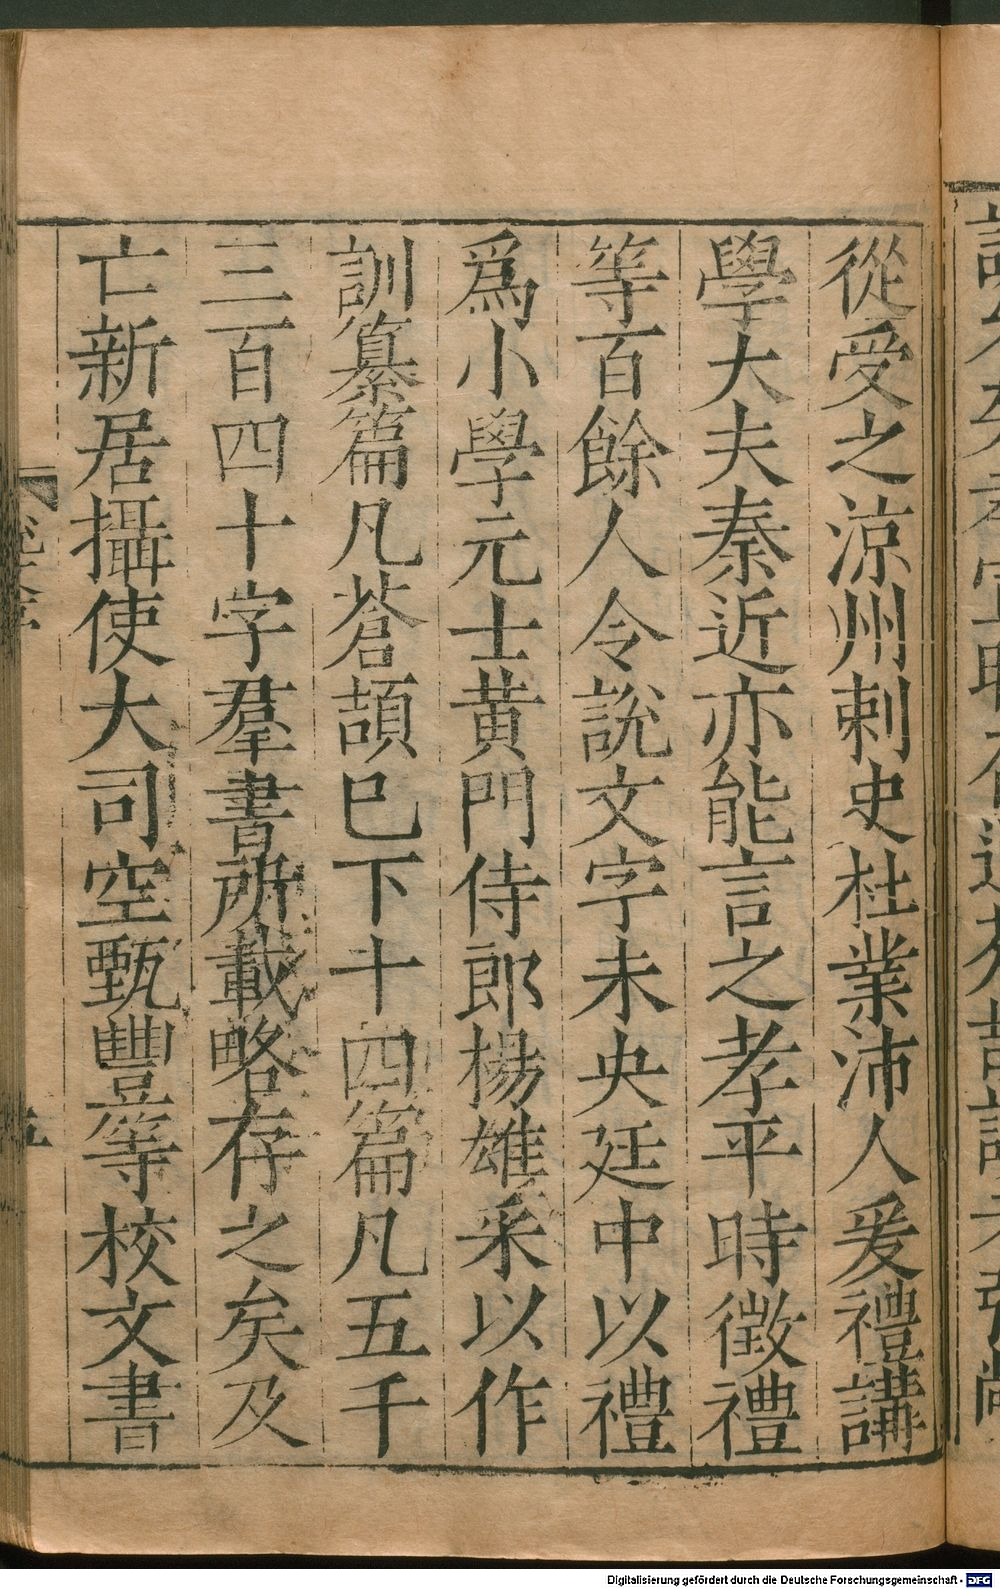 從受之涼州刺史杜業沛人爰禮講
學大夫秦近亦能言之孝平時徵禮
等百餘人令說文字未央廷中以禮
爲小學元士黃門侍郎楊雄采以作
訓纂篇凡蒼頡巳下十四篇凡五千
三百四十字羣書所載略存之矣及
亡新居攝使大司空甄豐等校文書
Digitalisierung gefördert durch die Deutsche Forschungsgemeinschaft - DFG